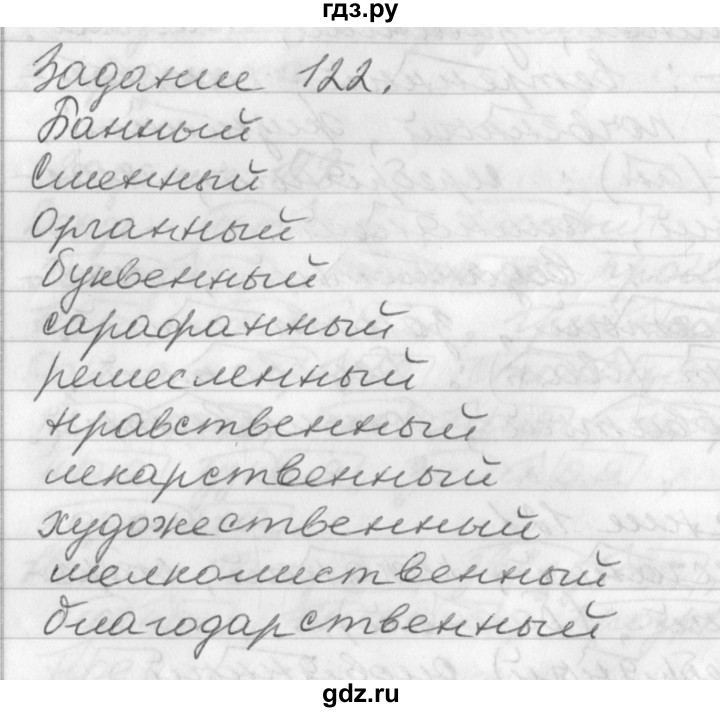 гдз.ру
Задание 122.
Банный
Сменный
Органный
буквенный
сарафанный
ремесленный
нравственный
лекарственный
художественный
мелколиственный
благодарственный
gdz.ru